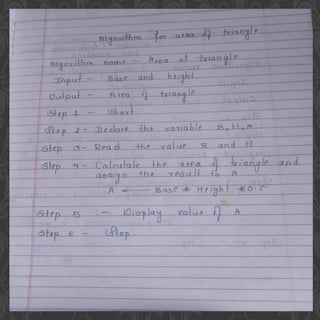 Algorithm for area of triangle.
Algorithm name - Area of triangle
Input - Base and height
Output - Area of triangle
Step 1 - Start
Step 2 - Declare the variable B, H, A
Step 3 - Read the value B and H
Step 4 - Calculate the area of triangle and
assign the result to A
A ← Base * Height * 0.5
Step 5 :- Display value of A
Step 6 - Stop